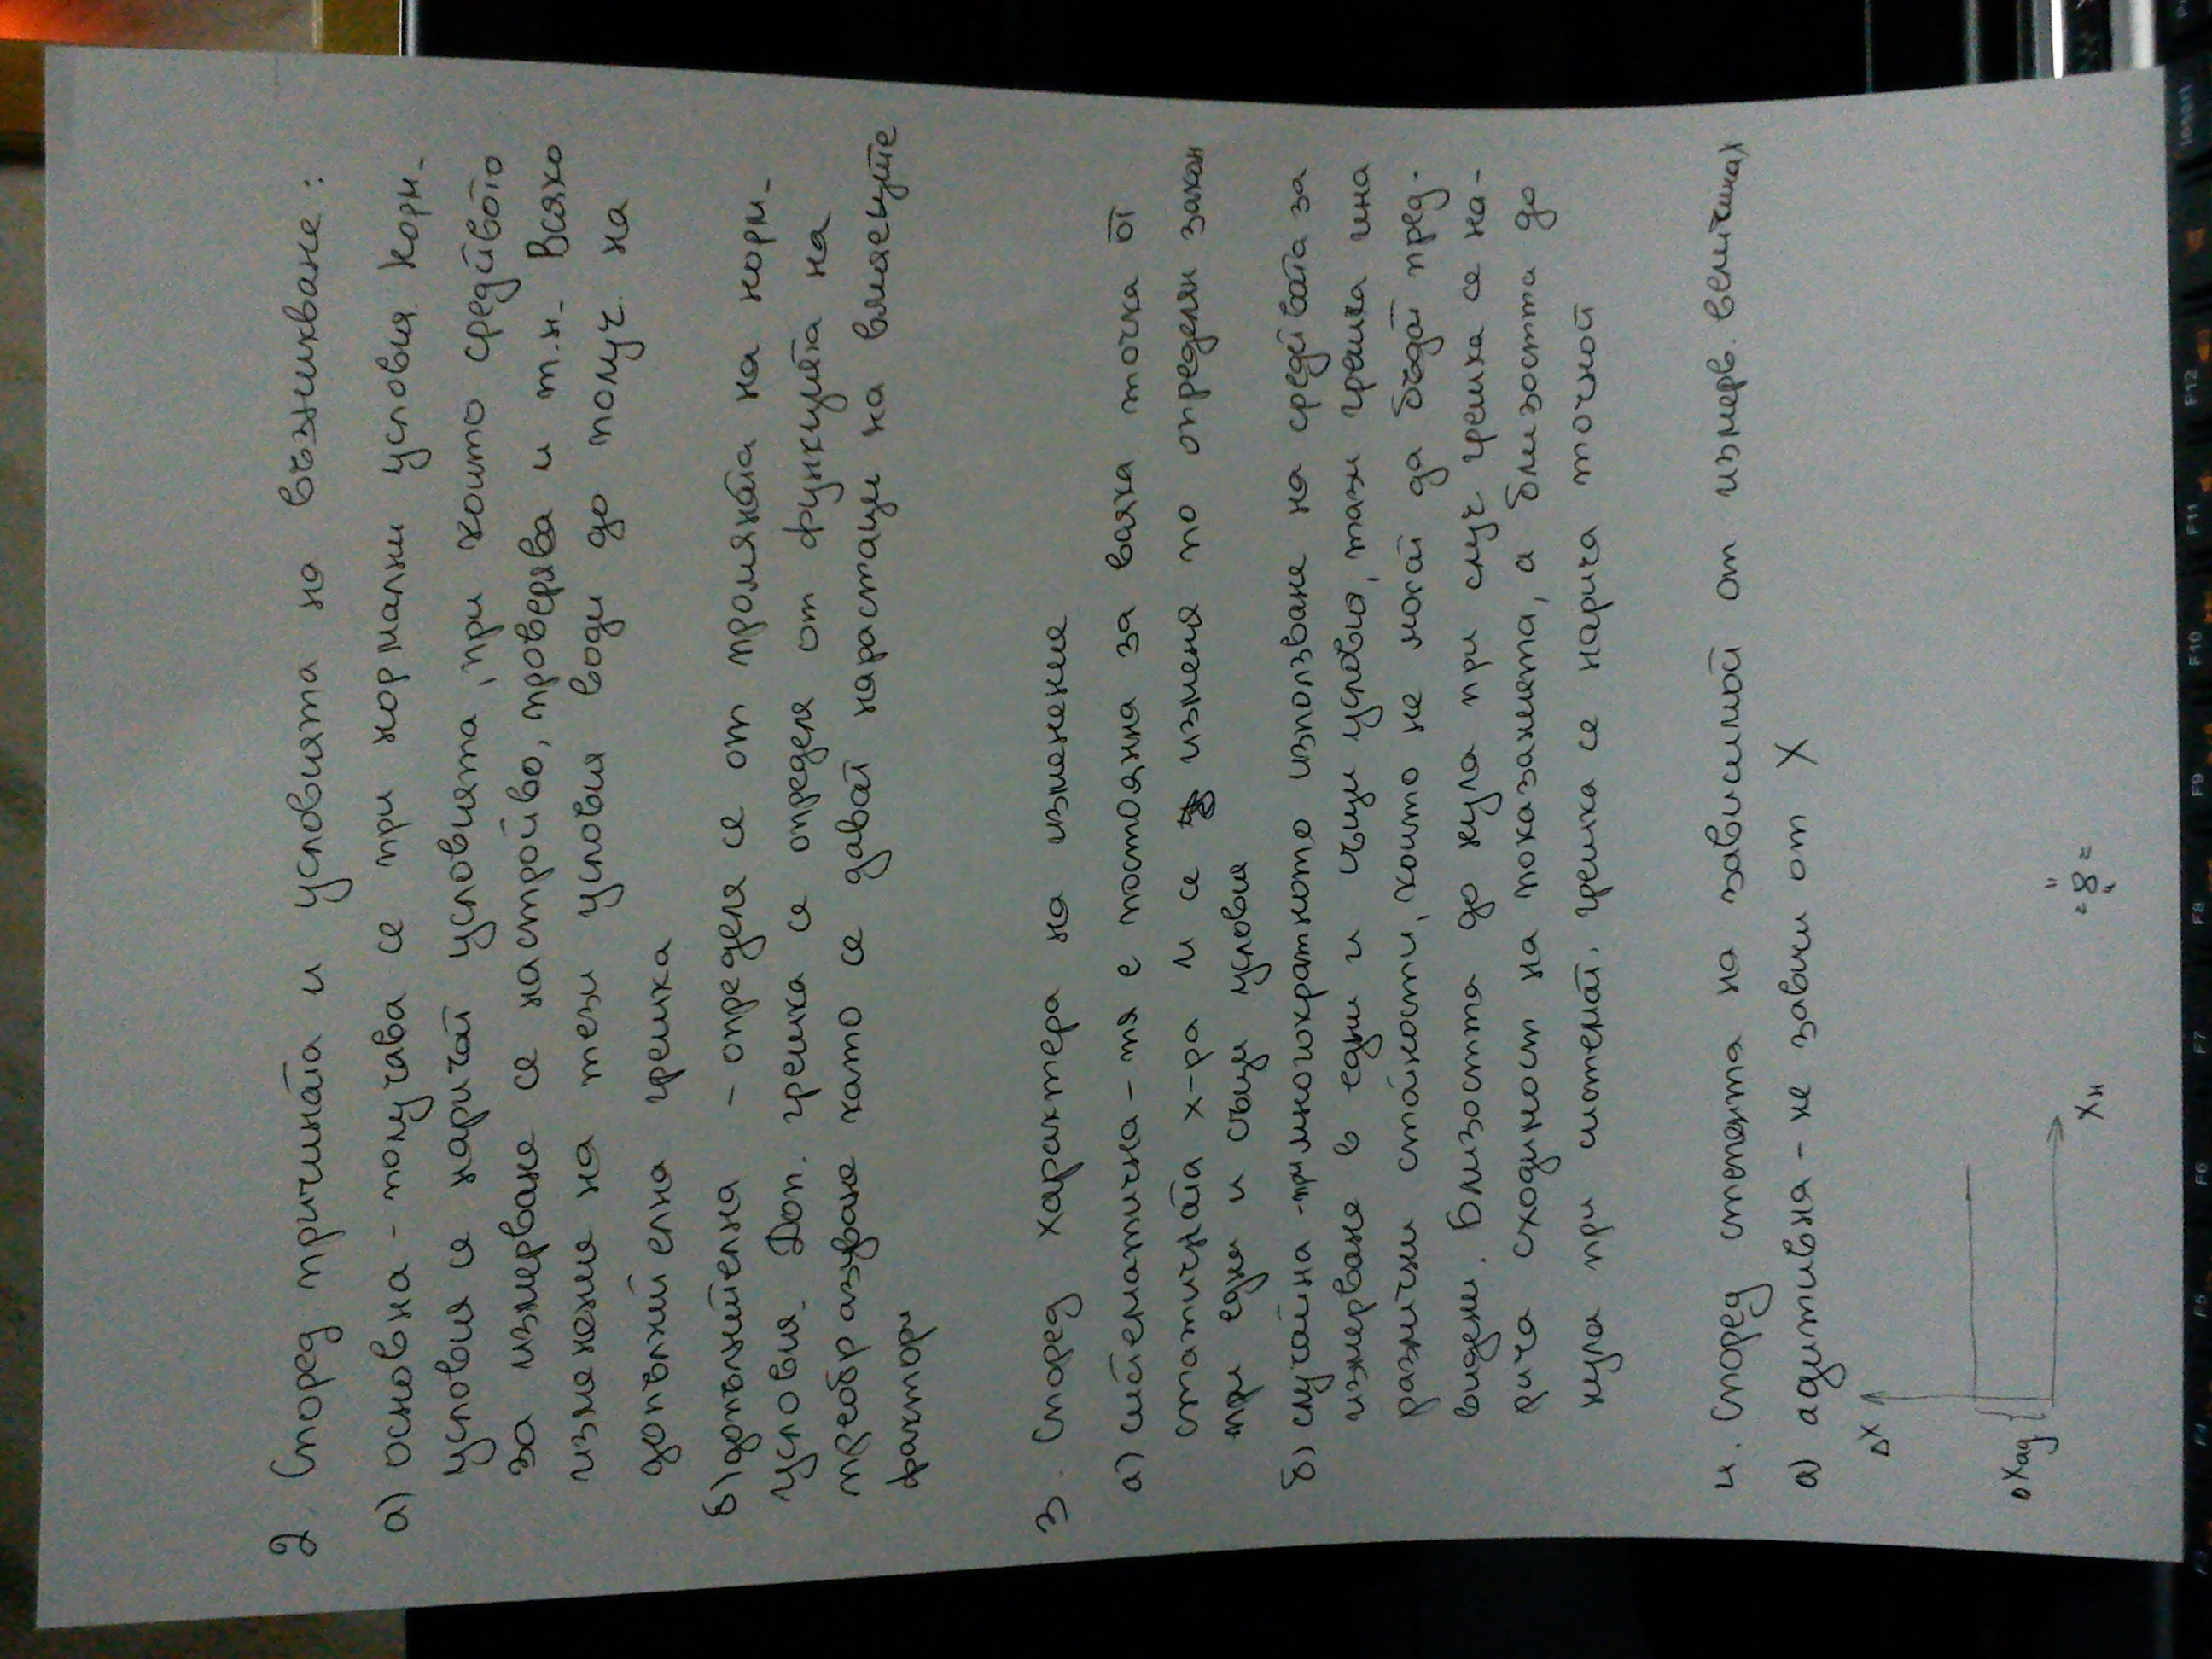 2. Според причината и условията на възникване:
а) основна - получава се при нормални условия. Норм.
условия се наричат условията, при които средството
за измерване се настройва, проверява и т.н. Всяко
изменение на тези условия води до получ. на
допълнителна грешка
б) допълнителна - определя се от промяната на норм.
условия. Доп. грешка се определя от функцията на
преобразуване като се дават нарастаци на влияещите
фактори
3. Според характера на изменение
а) систематична - тя е постоянна за всяка точка от
статичната х-ра и се изменя по определен закон
при едни и същи условия
б) случайна - при многократното използване на средствата за
измерване в едни и същи условия, тази грешка има
различни стойности, които не могат да бъдат пред-
видени. Близостта до нула при случ. грешка се на-
рича сходимост на показанията, а близостта до
нула при системат. грешка се нарича точност
4. Според степента на зависимост от измерв. величина x
а) адитивна - не зависи от X
ΔX
ΔXад
Xн
"8"
F12
F11
F10
F9
F8
F7
F6
F5
F4
Insert